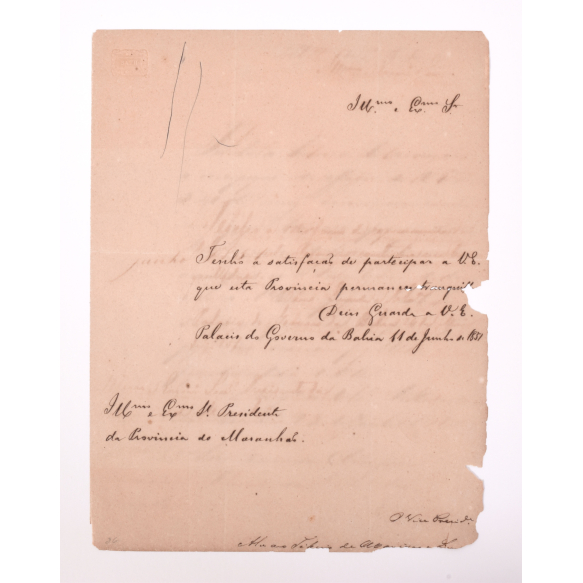 Ill.mo e Ex.mo Sr.
Tenho a satisfação de participar a V.E.
que esta Provincia permanece tranquil
Deus Guarda a V.E.
Palacio do Governo da Bahia 11 de Junho de
Ill.mo e Ex.mo Sr. Presidente
da Provincia do Maranhão.
O Vice Presid.